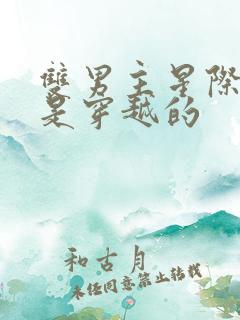 雙男主星際
是穿越的
和古月
未经同意禁止转载